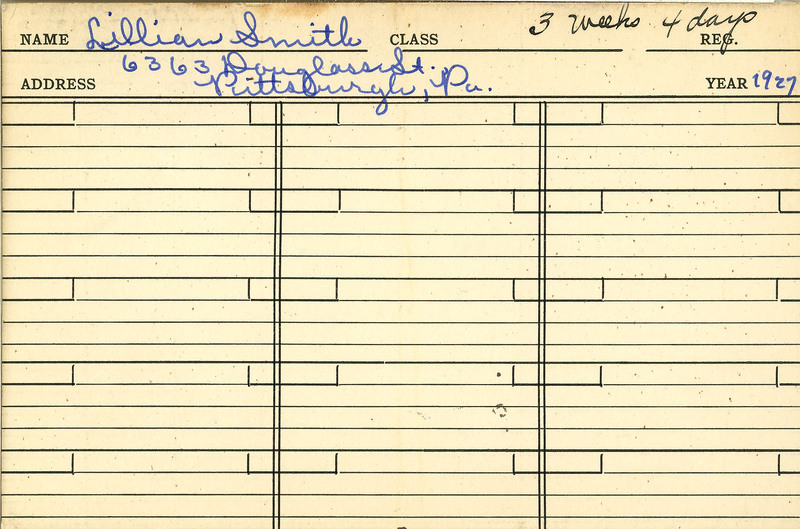 3 weeks 4 days
NAME Lillian Smith CLASS REG.
6363 Douglass St.
ADDRESS Pittsburgh, Pa. YEAR 1927